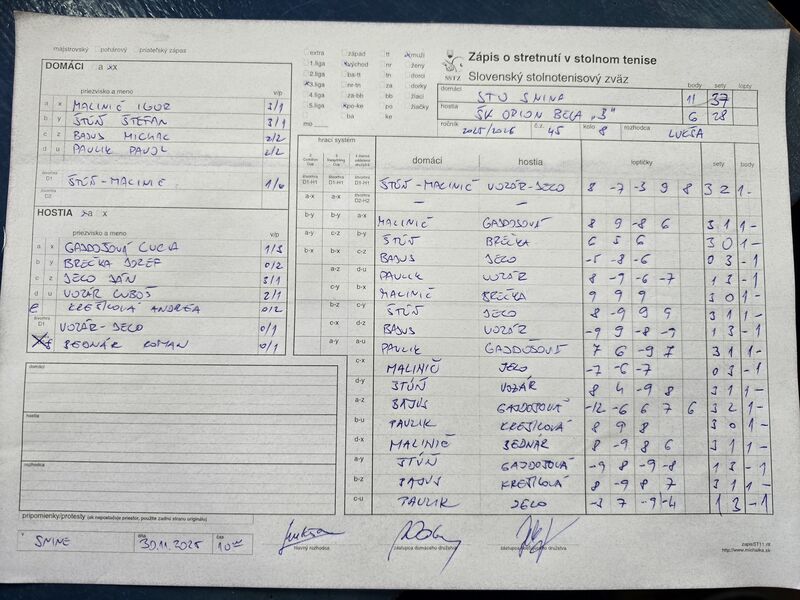 majstrovský pohárový priateľský zápas
extra západ tt x muži
1.liga x východ nr ženy
2.liga ba-tt tn dorci
x 3.liga nr-tn za dorky
4.liga za-bb bb žiaci
5.liga x po-ke po žiačky
mo ba ke
SSTZ
Zápis o stretnutí v stolnom tenise
Slovenský stolnotenisový zväz
body sety lopty
domáci STU SNINA 11 37
hostia ŠK ORION BELA "B" 6 28
ročník 2025/2026 č.z. 45 kolo 8 rozhodca LUKŠA
DOMÁCI a xx
priezvisko a meno v/p
a x MALINIČ IGOR 3/1
b y ŠTÚŇ ŠTEFAN 3/1
c z BAJUS MICHAL 2/2
d u PAULIK PAVOL 2/2
štvorhra
D1 ŠTÚŇ-MALINIČ 1/0
D2
HOSTIA xa x
priezvisko a meno v/p
a x GAJDOŠOVÁ LUCIA 1/3
b y BREČKA JOZEF 0/2
c z JECO JÁN 3/1
d u VOZÁR ĽUBOŠ 2/1
e KREŠKOVÁ ANDREA 0/2
štvorhra
D1 VOZÁR-JECO 0/1
BEDNÁR ROMAN 0/1
hrací systém domáci hostia loptičky sety body
D1-H1 D1-H1 D1-H1 ŠTÚŇ-MALINIČ VOZÁR-JECO 8 -7 -3 9 8 3 2 1 -
a-x a-x D2-H2 — —
b-y b-y a-x MALINIČ GAJDOŠOVÁ 8 9 -8 6 3 1 1 -
a-y c-z b-y ŠTÚŇ BREČKA 6 5 6 3 0 1 -
b-x b-x c-z BAJUS JECO -5 -8 -6 0 3 - 1
a-z d-u PAULIK VOZÁR 8 -9 -6 -7 1 3 - 1
c-y b-x MALINIČ BREČKA 9 9 9 3 0 1 -
b-z c-y ŠTÚŇ JECO 8 -9 9 9 3 1 1 -
c-x d-z BAJUS VOZÁR -9 9 -8 -9 1 3 - 1
a-y a-u PAULIK GAJDOŠOVÁ 7 6 -9 7 3 1 1 -
c-x MALINIČ JECO -7 -6 -7 0 3 - 1
d-y ŠTÚŇ VOZÁR 8 4 -9 8 3 1 1 -
a-z BAJUS GAJDOŠOVÁ -12 -6 6 7 6 3 2 1 -
b-u PAULIK KREŠKOVÁ 8 9 8 3 0 1 -
d-x MALINIČ BEDNÁR 8 -9 8 6 3 1 1 -
a-y ŠTÚŇ GAJDOŠOVÁ -9 8 -9 -8 1 3 - 1
b-z BAJUS KREŠKOVÁ 8 -9 8 7 3 1 1 -
c-u PAULIK JECO -3 7 -9 -4 1 3 - 1
domáci
hostia
rozhodca
pripomienky/protesty (ak nepostačuje priestor, použite zadnú stranu originálu)
v SNINE dňa 30.11.2025 čas 10 00
hlavný rozhodca zástupca domáceho družstva zástupca hosťujúceho družstva
zapisST11.rtt
http://www.michalka.sk